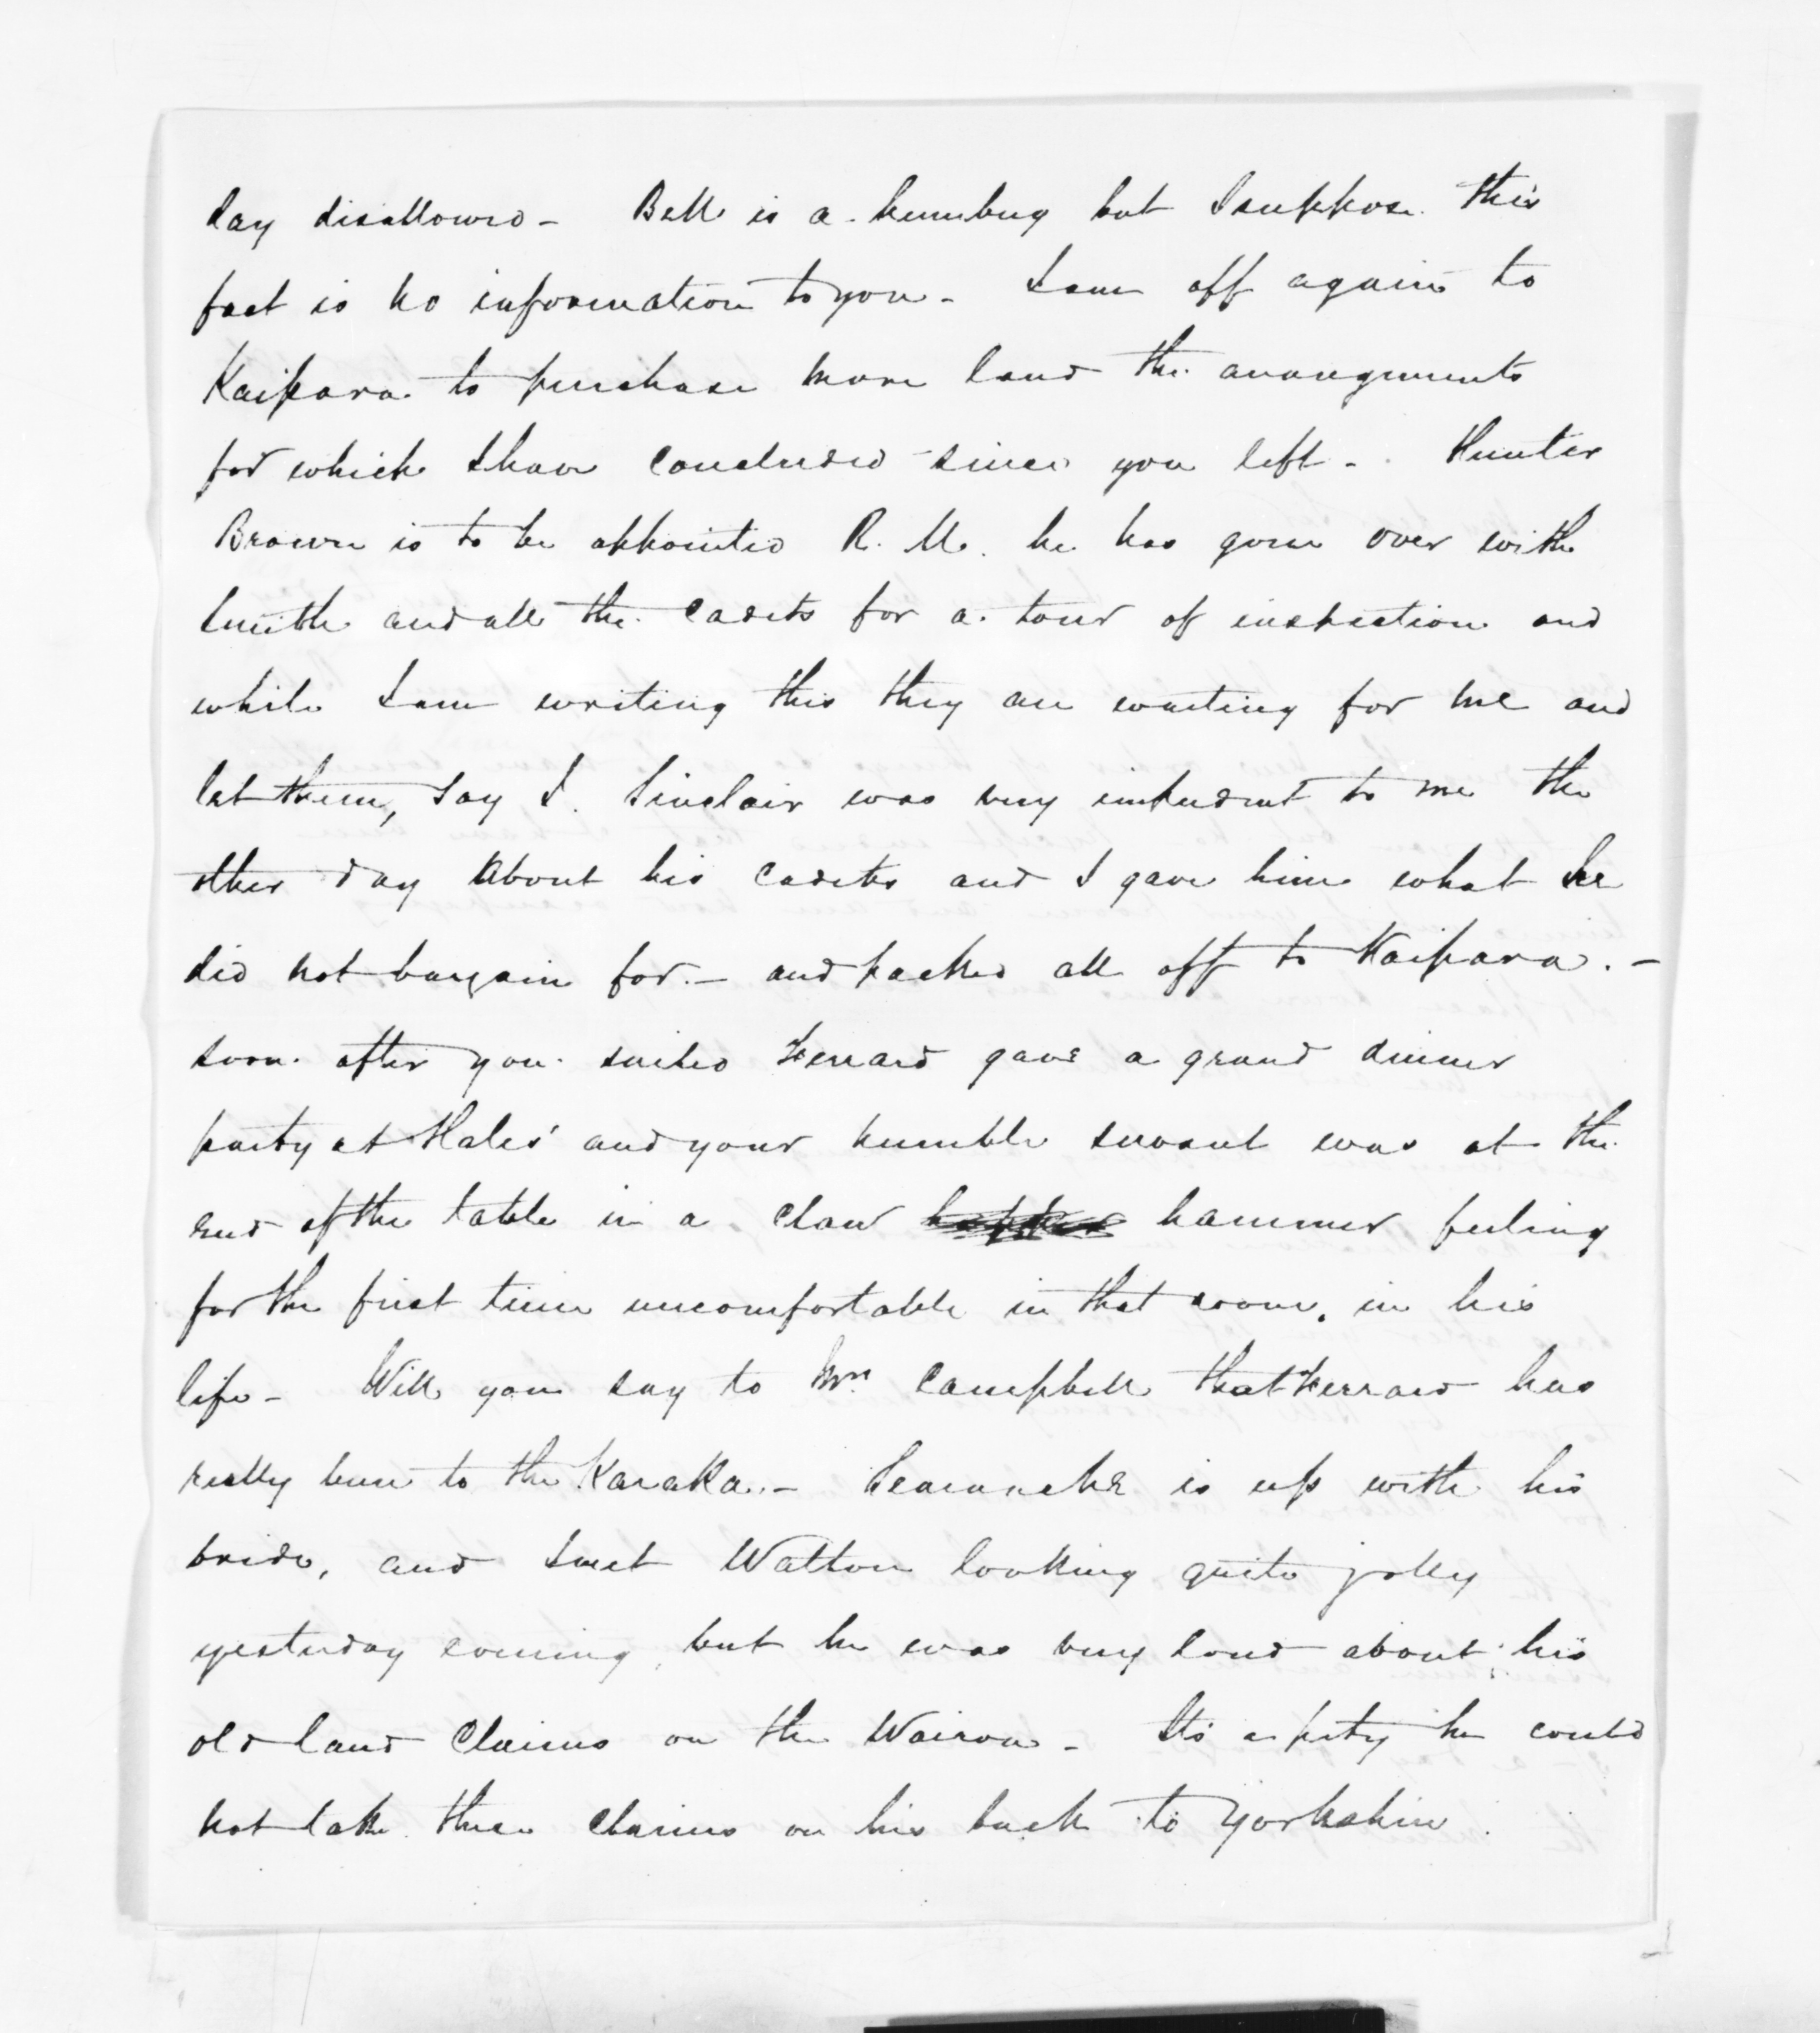 day disallowed - Bell is a humbug but I suppose this
fact is no information to you - I am off again to
Kaipara to purchase more land the arrangements
for which I have concluded since you left - Hunter
Brown is to be appointed R. M. he has gone over with
Smith and all the Cadets for a tour of inspection and
while I am writing this they are waiting for me and
let them, say I. Sinclair was very impudent to me the
other day about his cadets and I gave him what he
did not bargain for. - and packed all off to Kaipara. -
soon after you sailed Ferrard gave a grand dinner
party at Hales' and your humble servant was at the
end of the table in a claw hammer feeling
for the first time uncomfortable in that room, in his
life - Will you say to Mrs Campbell that Ferrard has
really been to the Karaka. - Searancke is up with his
bride, and I met Walton looking quite jolly
yesterday evening, but he was very loud about his
old land Claims on the Wairoa - It's a pity he could
not take these claims on his back to Yorkshire.